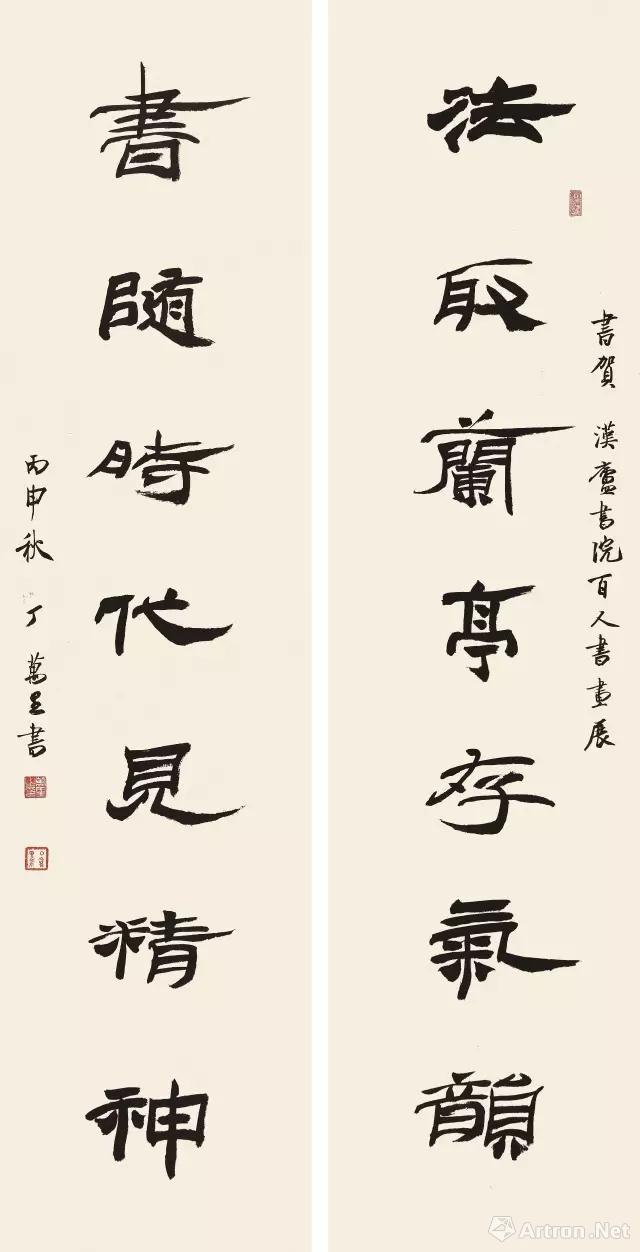 法取蘭亭存氣韻
書賀 漢廬書院百人書畫展
書随時代見精神
丙申秋 丁萬里書
Artron.Net